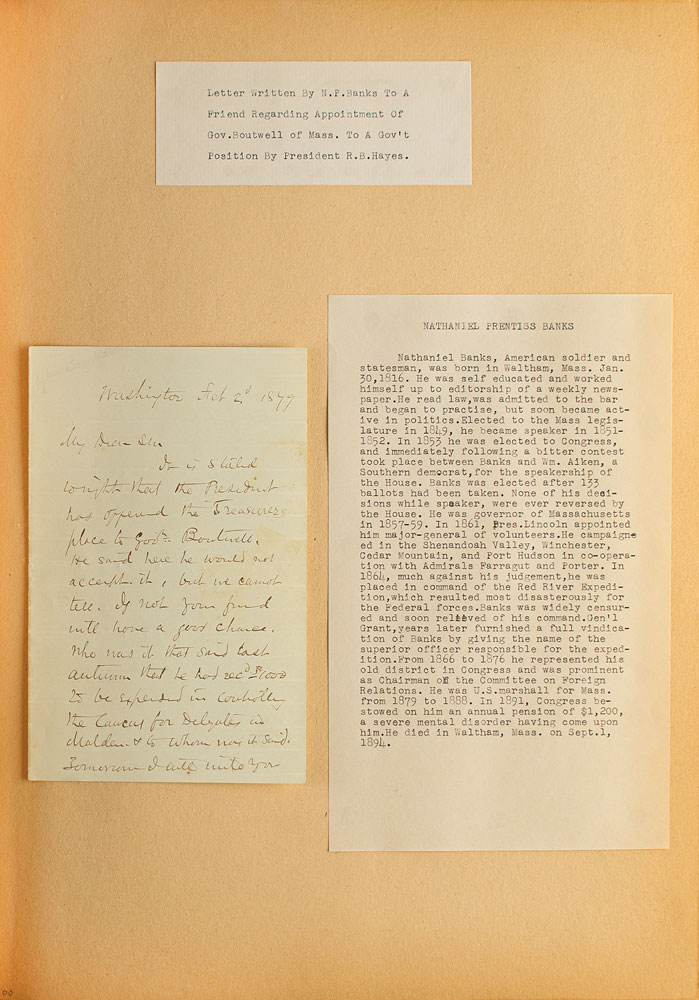 Letter Written By N.P.Banks To A
Friend Regarding Appointment Of
Gov.Boutwell of Mass. To A Gov't
Position By President R.B.Hayes.
Washington Feb 2d 1879
My Dear Sir
It is stated
to-night that the President
has offered the Treasurers
place to Govr. Boutwell.
He said here he would not
accept it, but we cannot
tell. If not your friend
will have a good chance.
Who was it that said last
autumn that he had recd $1000
to be expended in controlling
the Caucus for Delegates in
Malden & to whom was it said.
Tomorrow I will write you
NATHANIEL PRENTISS BANKS
Nathaniel Banks, American soldier and
statesman, was born in Waltham, Mass. Jan.
30,1816. He was self educated and worked
himself up to editorship of a weekly news-
paper.He read law,was admitted to the bar
and began to practise, but soon became act-
ive in politics.Elected to the Mass legis-
lature in 1849, he became speaker in 1851-
1852. In 1853 he was elected to Congress,
and immediately following a bitter contest
took place between Banks and Wm. Aiken, a
Southern democrat,for the speakership of
the House. Banks was elected after 133
ballots had been taken. None of his deci-
sions while speaker, were ever reversed by
the House. He was governor of Massachusetts
in 1857-59. In 1861, Pres.Lincoln appointed
him major-general of volunteers.He campaign-
ed in the Shenandoah Valley, Winchester,
Cedar Mountain, and Port Hudson in co-opera-
tion with Admirals Farragut and Porter. In
1864, much against his judgement,he was
placed in command of the Red River Expedi-
tion,which resulted most disasterously for
the Federal forces.Banks was widely censur-
ed and soon relieved of his command.Gen'l
Grant,years later furnished a full vindica-
tion of Banks by giving the name of the
superior officer responsible for the exped-
ition.From 1866 to 1876 he represented his
old district in Congress and was prominent
as Chairman of the Committee on Foreign
Relations. He was U.S.marshall for Mass.
from 1879 to 1888. In 1891, Congress be-
stowed on him an annual pension of $1,200,
a severe mental disorder having come upon
him.He died in Waltham, Mass. on Sept.1,
1894.